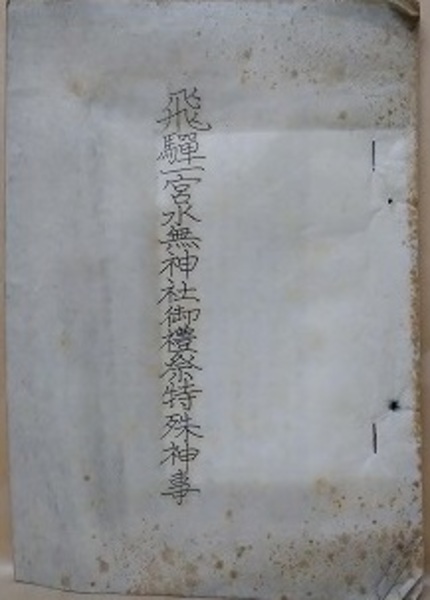 飛驒一宮水無神社御禮祭特殊神事